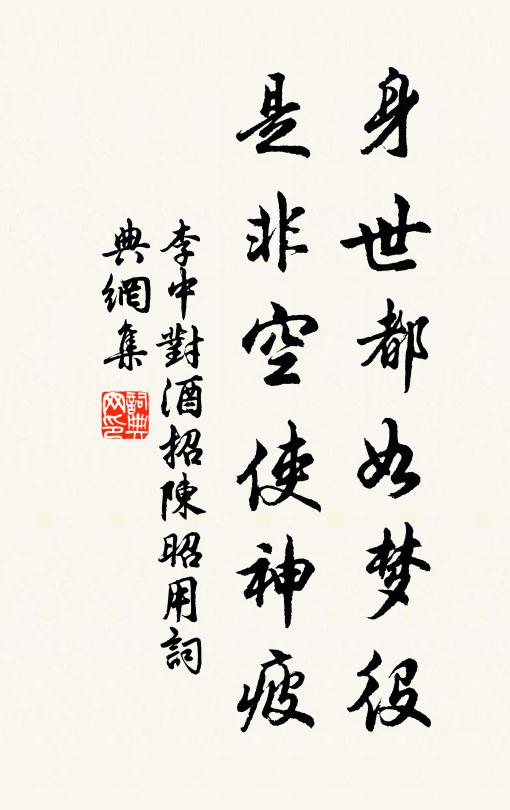 身世都如梦役
是非空使神疲
李中對酒招陳昭用詞
典網集
詞典
网印